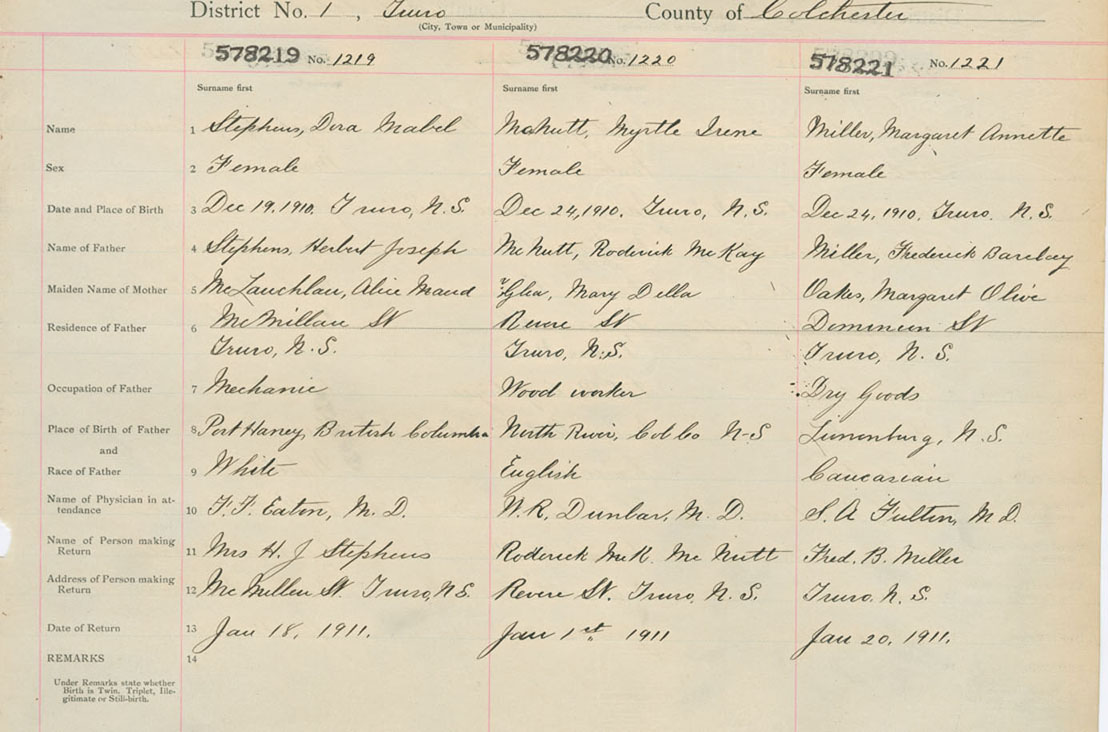 District No. 1, Truro County of Colchester
(City, Town or Municipality)
578219 No. 1219 578220 No. 1220 578221 No. 1221
Surname first Surname first Surname first
Name 1 Stephens, Dora Mabel McNutt, Myrtle Irene Miller, Margaret Annette
Sex 2 Female Female Female
Date and Place of Birth 3 Dec 19, 1910. Truro, N.S. Dec 24, 1910. Truro, N.S. Dec 24, 1910. Truro. N.S.
Name of Father 4 Stephens, Herbert Joseph McNutt, Roderick McKay Miller, Frederick Barclay
Maiden Name of Mother 5 McLauchlan, Alice Maud Mary Della Oakes, Margaret Olive
Residence of Father 6 McMillan St Revere St Dominion St
Truro, N.S. Truro, N.S. Truro, N.S.
Occupation of Father 7 Mechanic Wood worker Dry Goods
Place of Birth of Father 8 Port Haney, British Columbia North River, Col Co N-S Lunenburg, N.S.
and
Race of Father 9 White English Caucasian
Name of Physician in at-
tendance 10 F. F. Eaton, M.D. W.R. Dunbar, M.D. S. A Fulton, M D.
Name of Person making
Return 11 Mrs H. J Stephens Roderick McK. McNutt Fred. B. Miller
Address of Person making
Return 12 McMillen St. Truro, N.S. Revere St. Truro, N.S. Truro, N.S.
Date of Return 13 Jan 18, 1911. Jan 1st 1911 Jan 20, 1911.
REMARKS 14
Under Remarks state whether
Birth is Twin, Triplet, Ille-
gitimate or Still-birth.